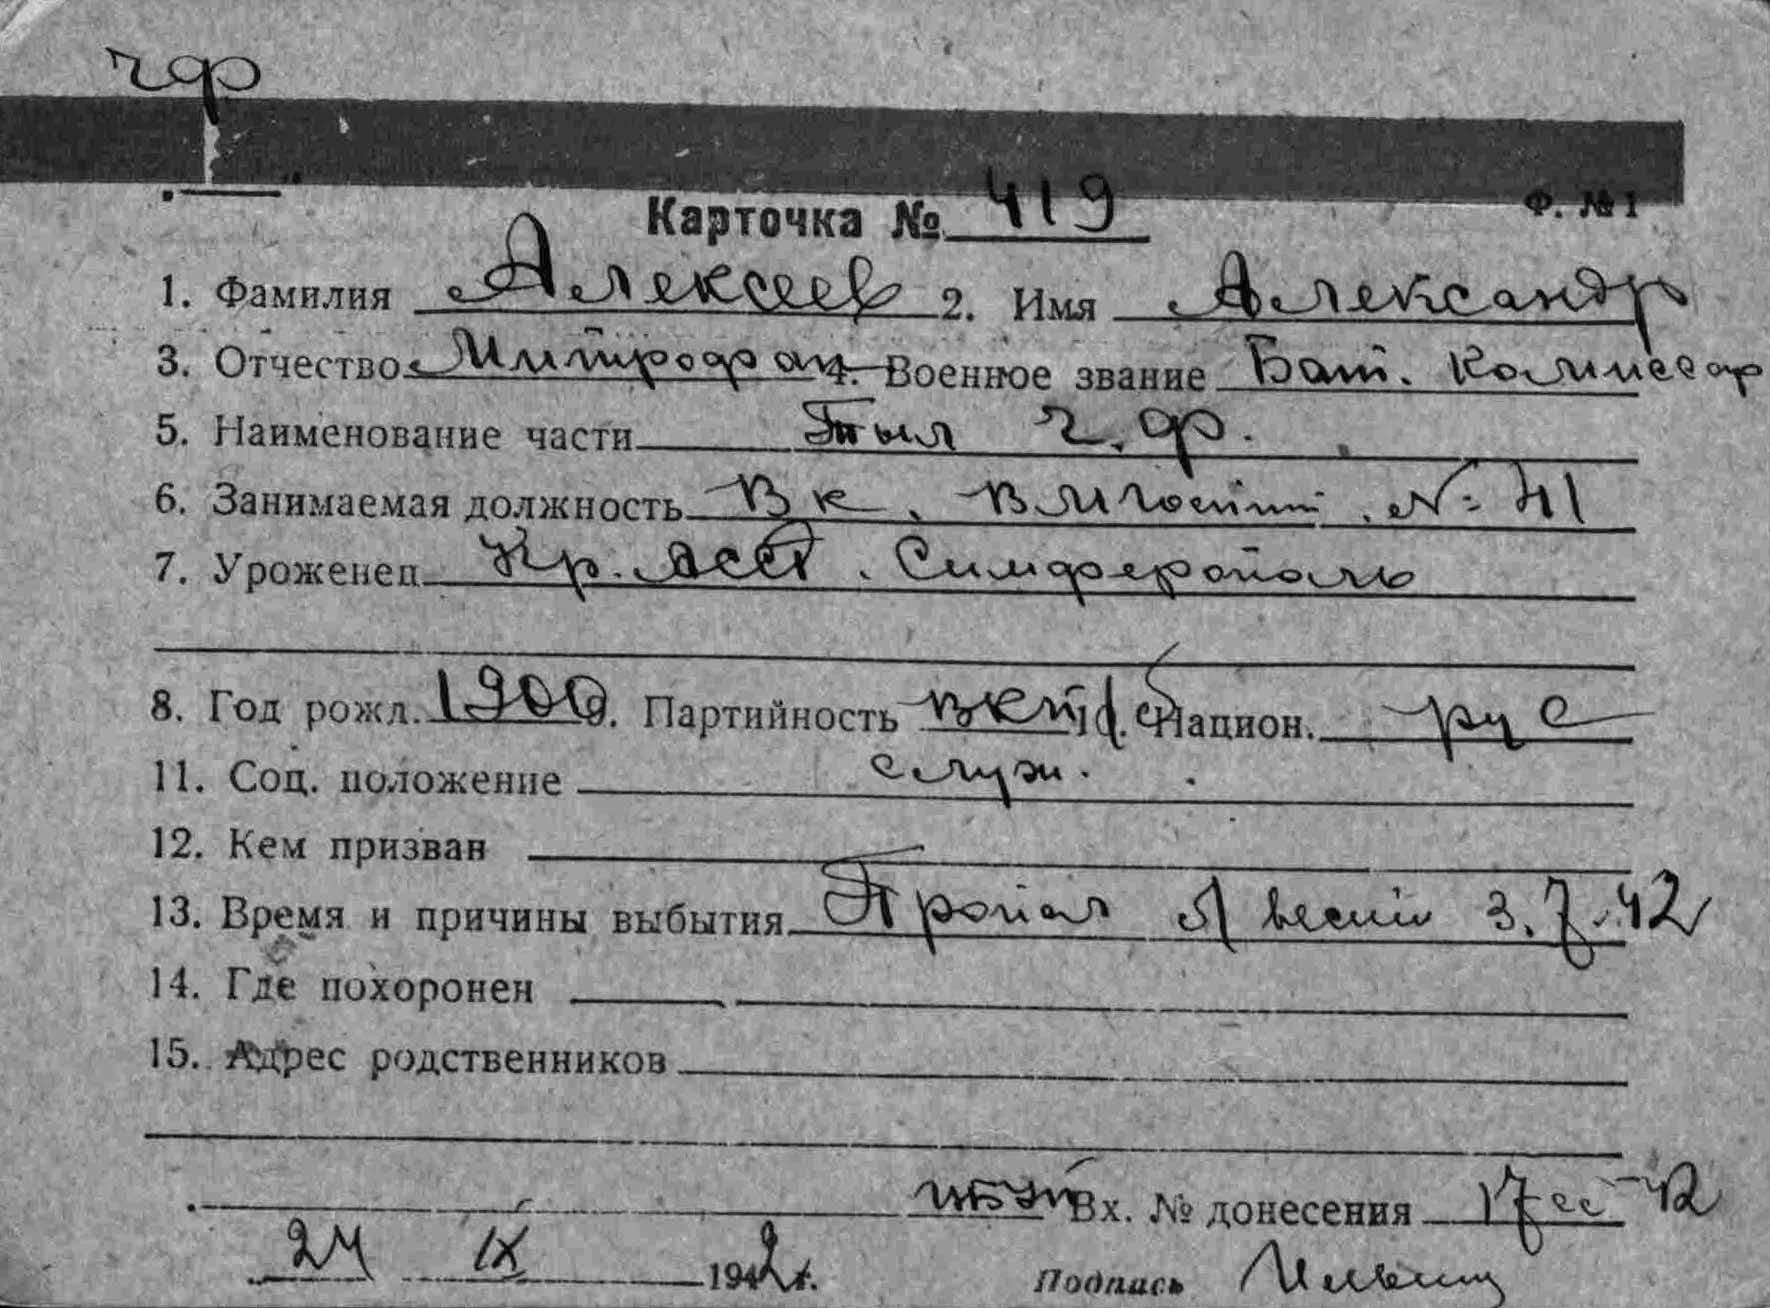 чф
Ф. №1
Карточка № 419
1. Фамилия Алексеев 2. Имя Александр
3. Отчество Митрофан 4. Военное звание Бат. Комиссар
5. Наименование части Тыл Ч.Ф.
6. Занимаемая должность ВК. ВМГоспит. № 41
7. Уроженец Кр. АССР. Симферополь
8. Год рожд. 1900. Партийность ВКП(б) Национ. рус
11. Соц. положение служ.
12. Кем призван
13. Время и причины выбытия Пропал б/вести 3.7.42
14. Где похоронен
15. Адрес родственников
Вх. № донесения 17сс-42
24 IX 1942г.
Подпись